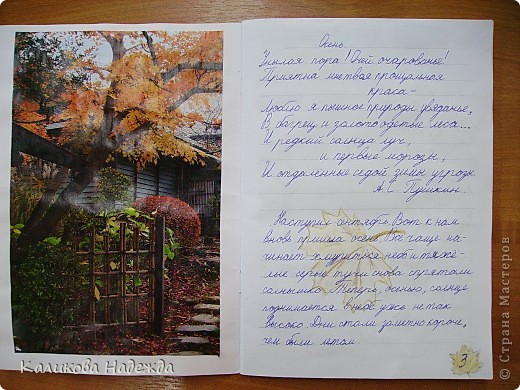 Осень.
Унылая пора! Очей очарованье!
Приятна мне твоя прощальная
краса –
Люблю я пышное природы увяданье,
В багрец и золото одетые леса...
И редкий солнца луч,
и первые морозы,
И отдалённые седой зимы угрозы
А.С. Пушкин.
Наступил сентябрь. Вот к нам
вновь пришла осень. Всё чаще на-
чинает хмуриться небо и тяжё-
лые серые тучи снова спрятали
солнышко. Теперь, осенью, солнце
поднимается в небе уже не так
высоко. Дни стали заметно короче,
чем были летом.
3
Каликова Надежда
© Страна Мастеров